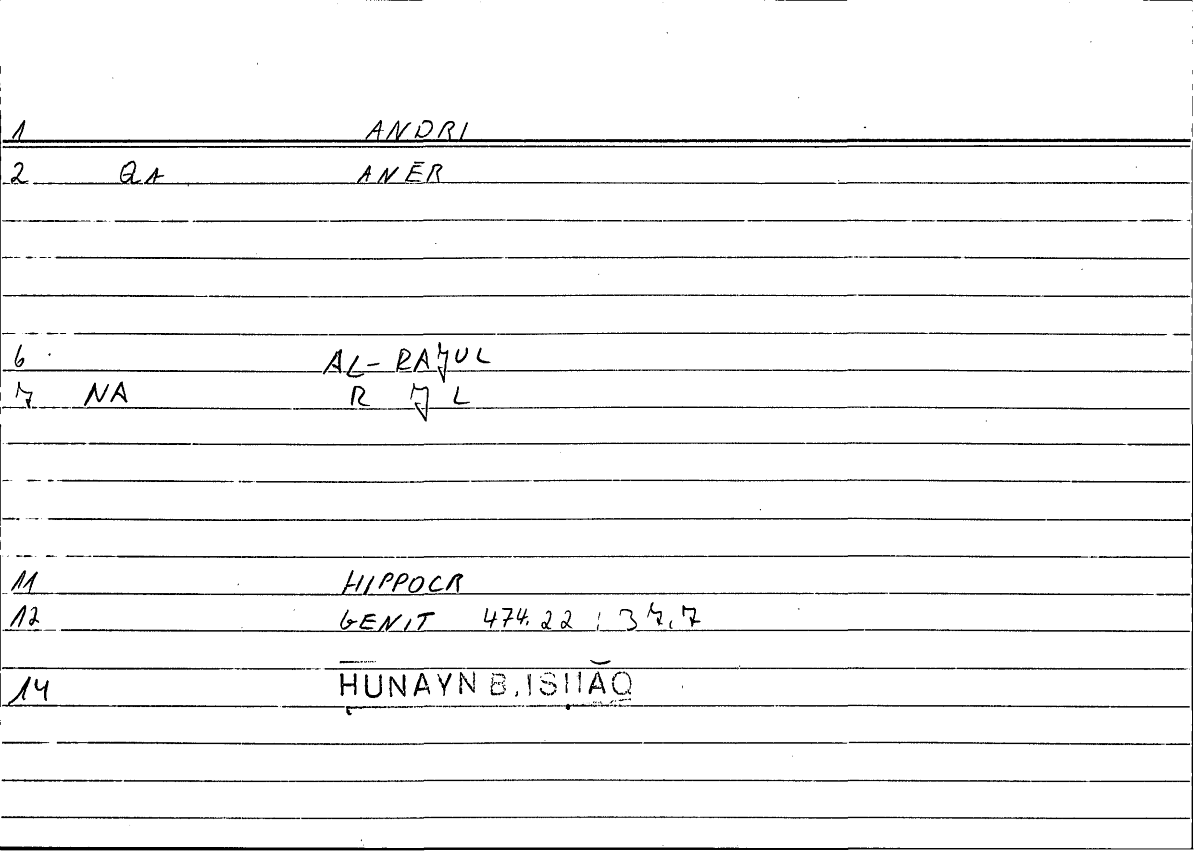 1 ANDRI
2 QA ANĒR
6 AL-RAJUL
7 NA R J L
11 HIPPOCR
12 GENIT 474.22 ; 37,7
14 ḤUNAYN B. ISḤĀQ